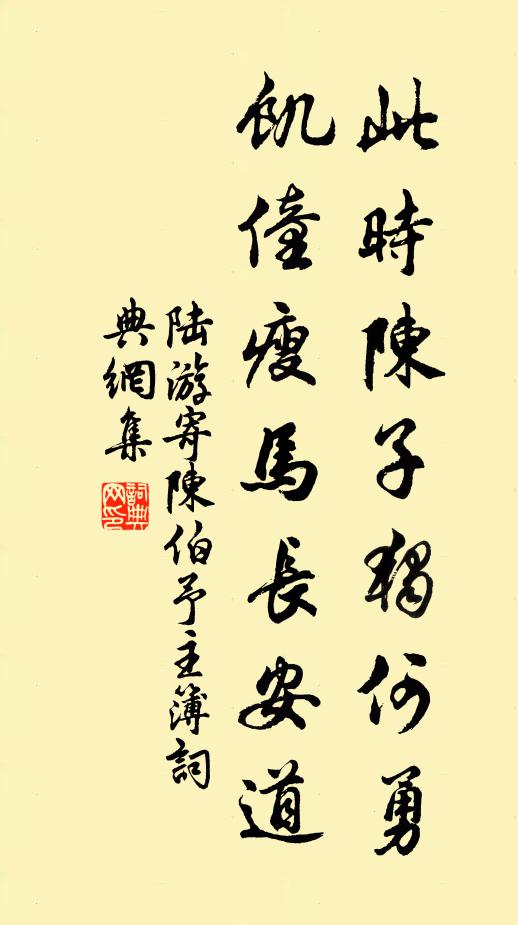 此時陳子獨何勇
飢僮瘦馬長安道
陸游寄陳伯予主簿詞
典網集
詞典
网印